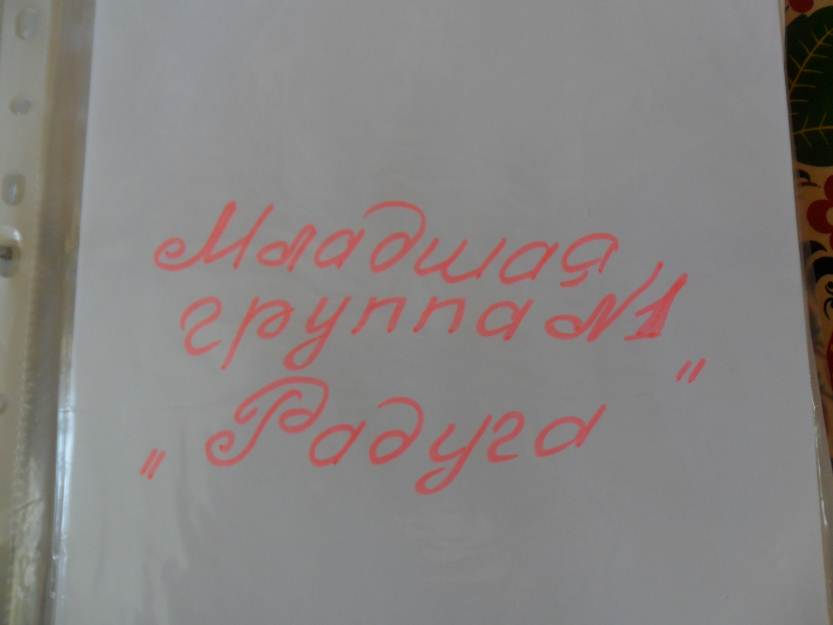 Младшая
группа №1
„Радуга"